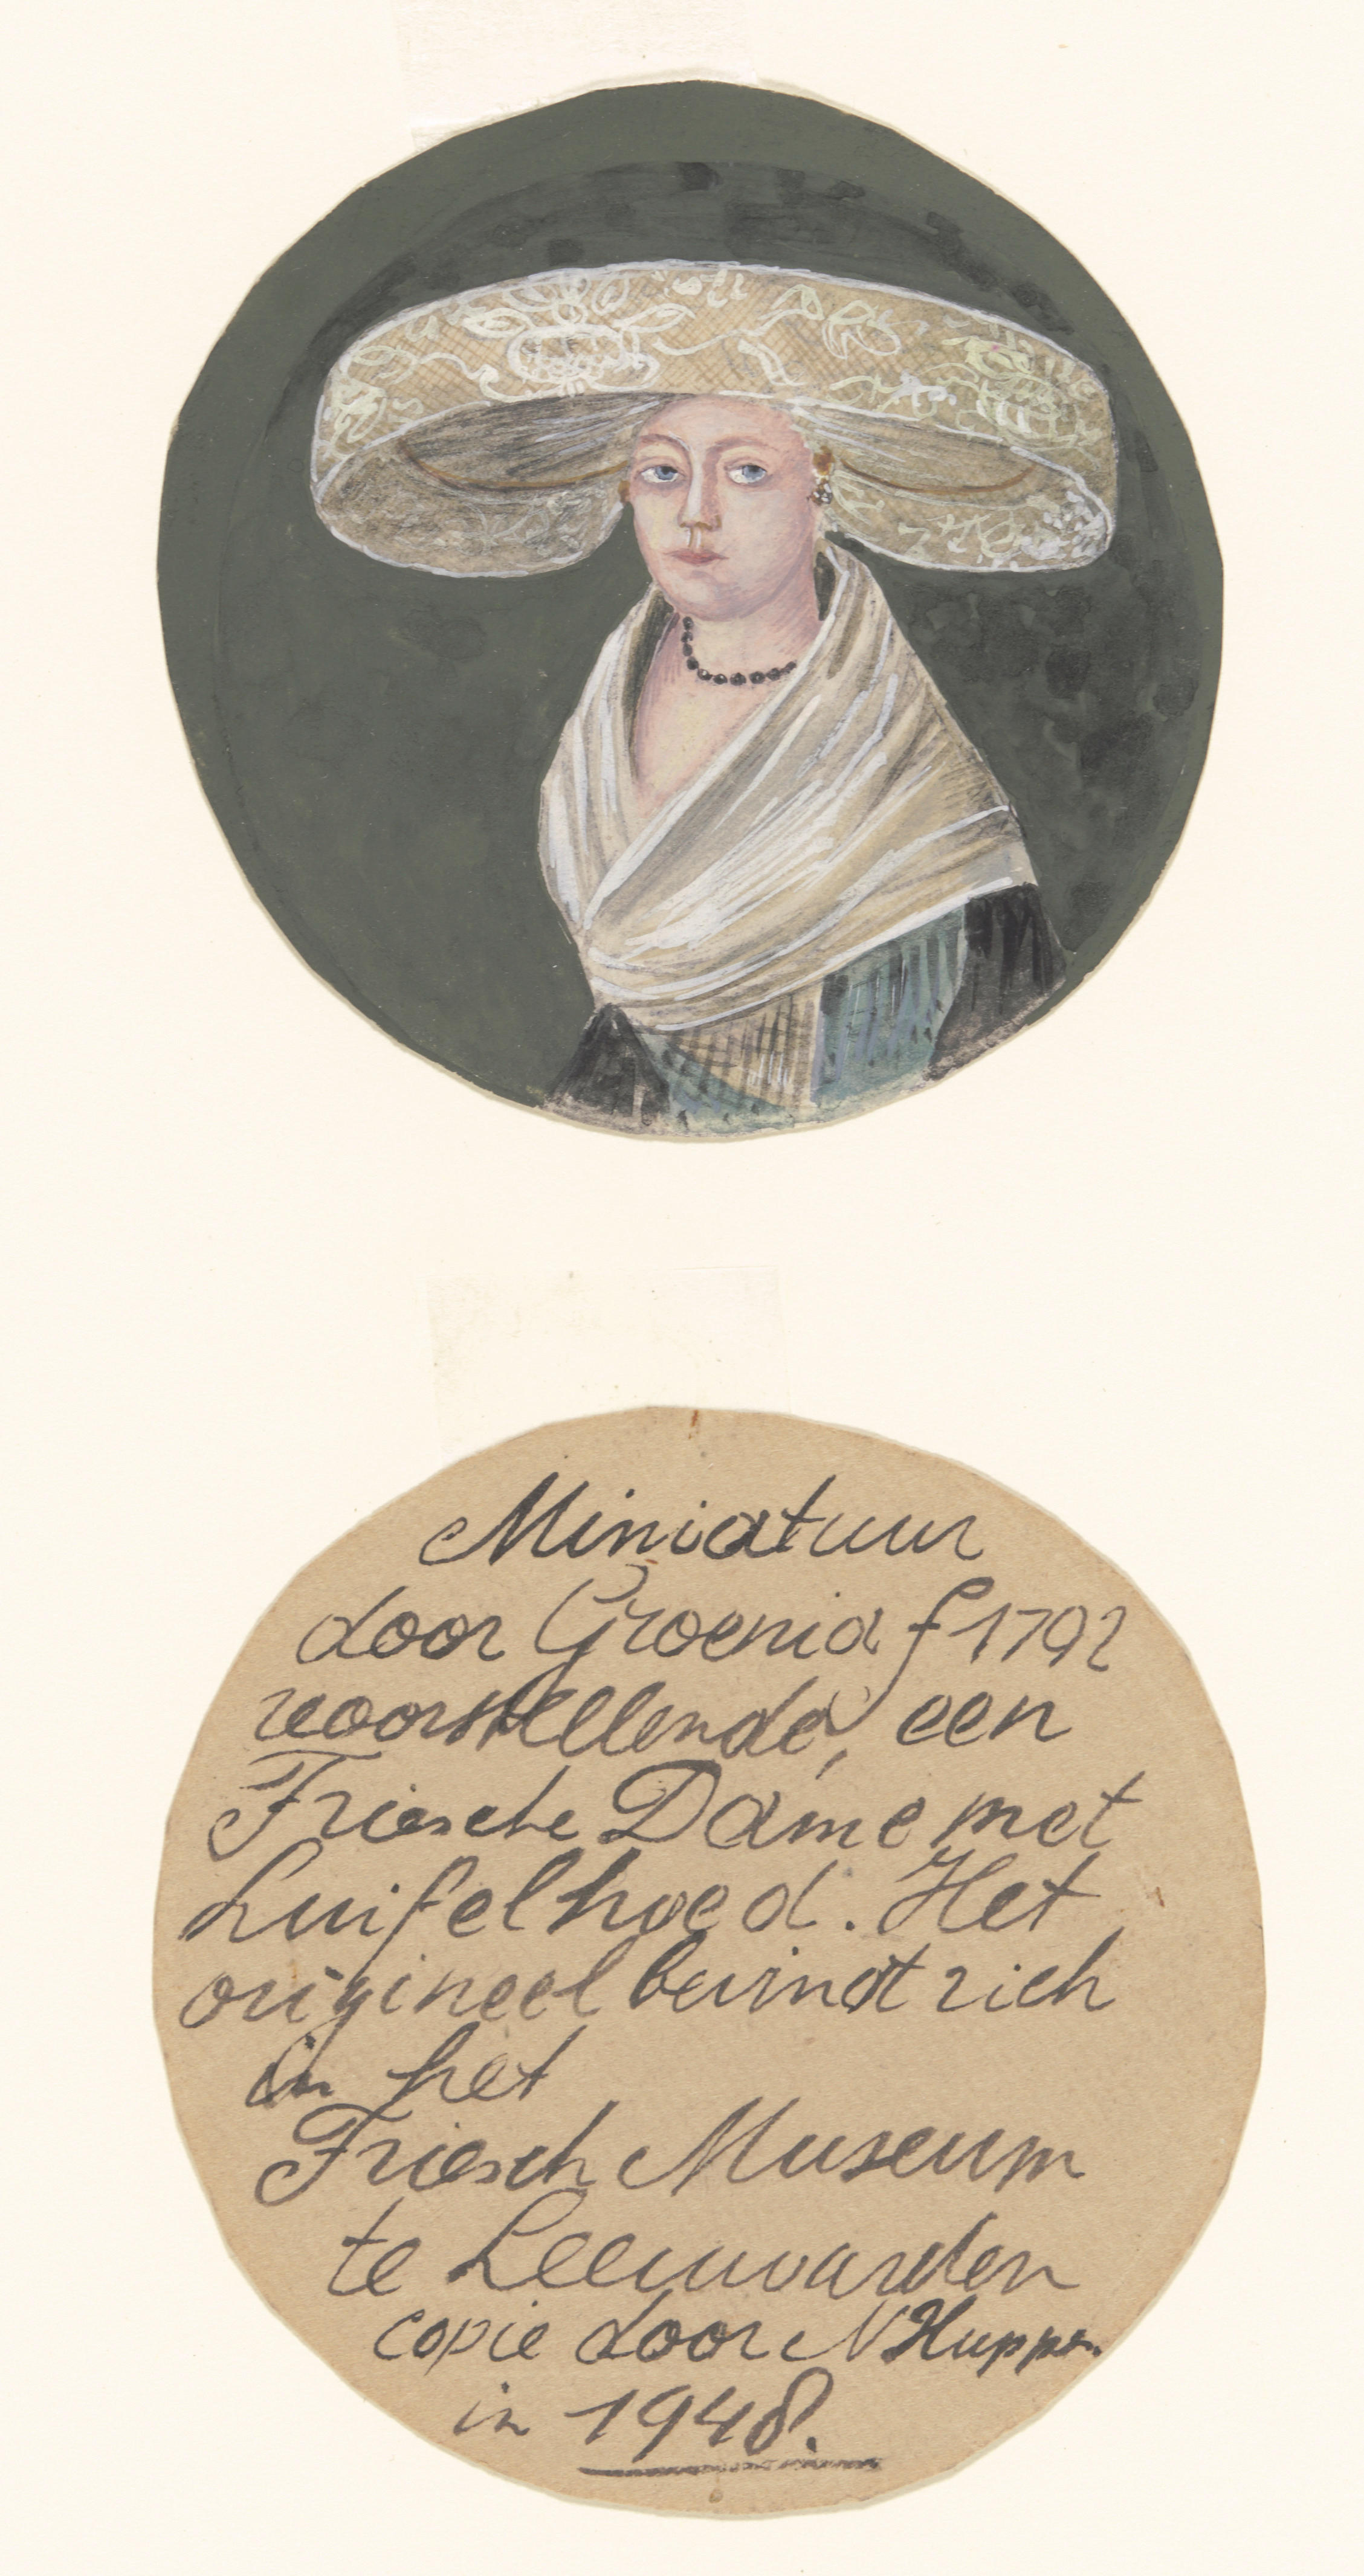 Miniatuur
door Groenia f 1792
voorstellende, een
Friesche Dame met
Luifelhoed. Het
origineel bevindt zich
in het
Friesch Museum
te Leeuwarden
copie door N Huppen
in 1948.